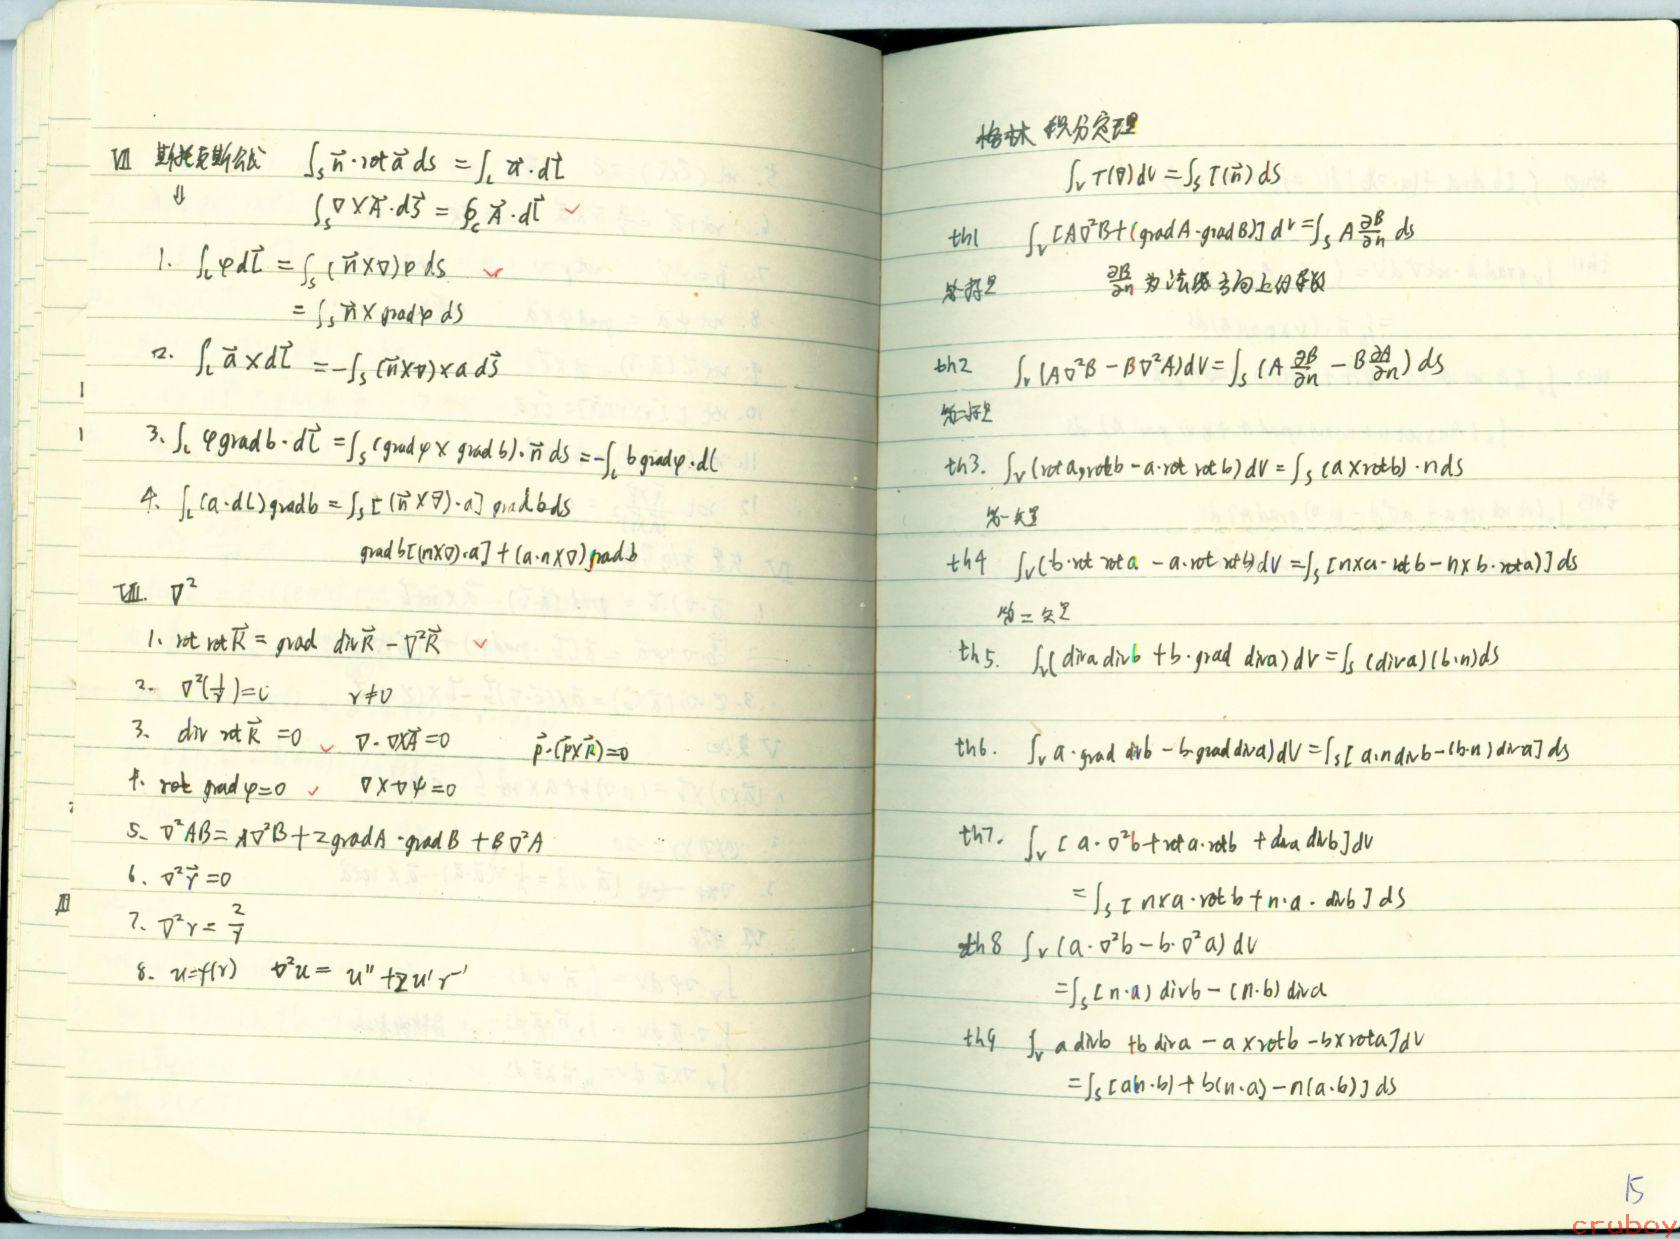 VII 斯托克斯公式 ∫_S n⃗·rot a⃗ ds = ∫_L a⃗·dl⃗
⇓ ∫_S ∇×A⃗·dS⃗ = ∮_C A⃗·dl⃗ ✓
1. ∫_L φdl⃗ = ∫_S (n⃗×∇)φ ds ✓
= ∫_S n⃗×gradφ ds
2. ∫_L a⃗×dl⃗ = -∫_S (n⃗×∇)×a ds⃗
3. ∫_L φ grad b·dl⃗ = ∫_S (gradφ × grad b)·n⃗ ds = -∫_L b gradφ·dl
4. ∫_L (a·dl) grad b = ∫_S [(n⃗×∇)·a] grad b ds
grad b[(n×∇)·a] + (a·n×∇) grad b
VIII. ∇²
1. rot rot R⃗ = grad div R⃗ - ∇²R⃗ ✓
2. ∇²(1/r)=0 r≠0
3. div rot R⃗ =0 ✓ ∇·∇×A⃗=0 p⃗·(p⃗×R⃗)=0
4. rot grad φ=0 ✓ ∇×∇ψ=0
5. ∇²AB = A∇²B + 2gradA·gradB + B∇²A
6. ∇²r⃗=0
7. ∇²r = 2/r
8. u=f(r) ∇²u = u″+2u′r⁻¹
格林 积分定理
∫_V T(∇)dV = ∫_S T(n⃗) ds
th1 ∫_V [A∇²B+(gradA·gradB)] dv = ∫_S A ∂B/∂n ds
第一标量 ∂B/∂n 为法线方向上的导数
th2 ∫_V (A∇²B - B∇²A)dV = ∫_S (A ∂B/∂n - B ∂A/∂n) ds
第二标量
th3. ∫_V (rot a·rot b - a·rot rot b) dV = ∫_S (a×rot b)·n ds
第一矢量
th4 ∫_V (b·rot rot a - a·rot rot b) dV = ∫_S [n×a·rot b - n×b·rot a)] ds
第二矢量
th5. ∫_V (div a div b + b·grad div a) dV = ∫_S (div a)(b·n)ds
th6. ∫_V a·grad div b - b·grad div a) dV = ∫_S [a·n div b - (b·n) div a] ds
th7. ∫_V [a·∇²b + rot a·rot b + div a div b] dV
= ∫_S [n×a·rot b + n·a·div b] ds
th8 ∫_V (a·∇²b - b·∇²a) dV
= ∫_S [n·a) div b - (n·b) div a
th9 ∫_V a div b + b div a - a×rot b - b×rot a] dV
= ∫_S [a(n·b) + b(n·a) - n(a·b)] ds
15
cruboy